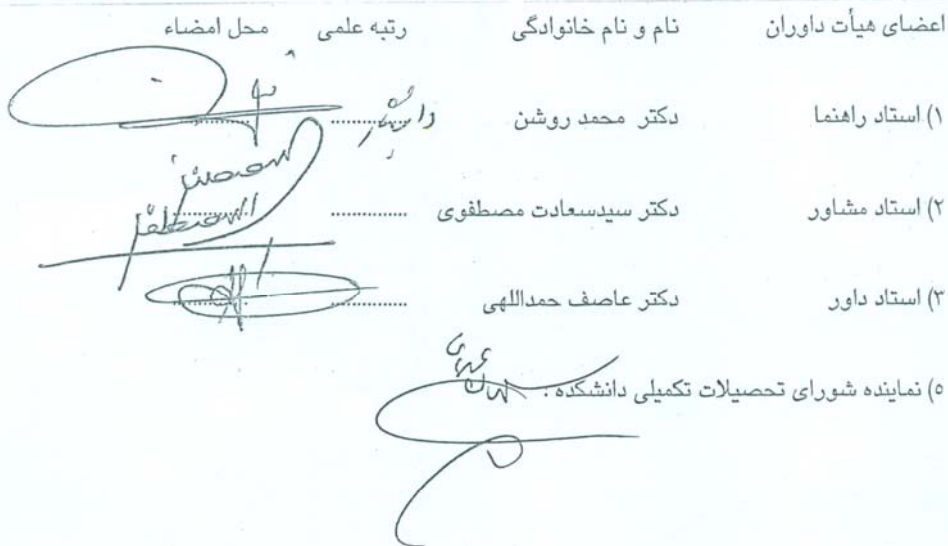 اعضای هیأت داوران نام و نام خانوادگی رتبه علمی محل امضاء
۱) استاد راهنما دکتر محمد روشن ............ دانشیار ............
۲) استاد مشاور دکتر سیدسعادت مصطفوی ............ ............
۳) استاد داور دکتر عاصف حمداللهی ............ ............
۵) نماینده شورای تحصیلات تکمیلی دانشکده :